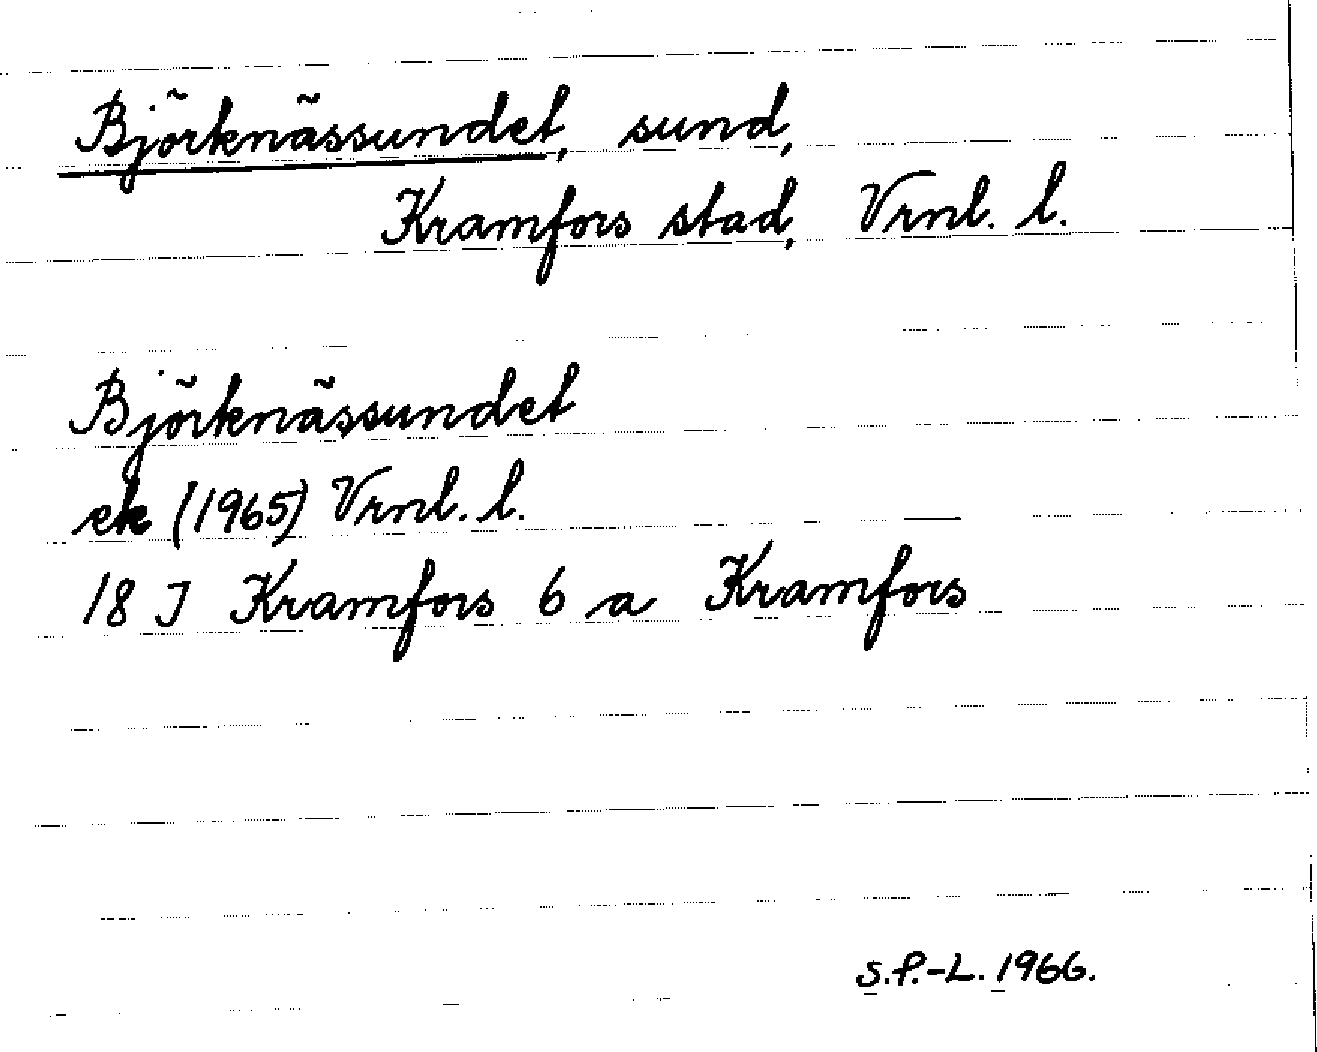 Björknässundet, sund,
Kramfors stad, Vrnl. l.
Björknässundet
ek (1965) Vrnl. l.
18 J Kramfors 6 a Kramfors
S.P.-L. 1966.